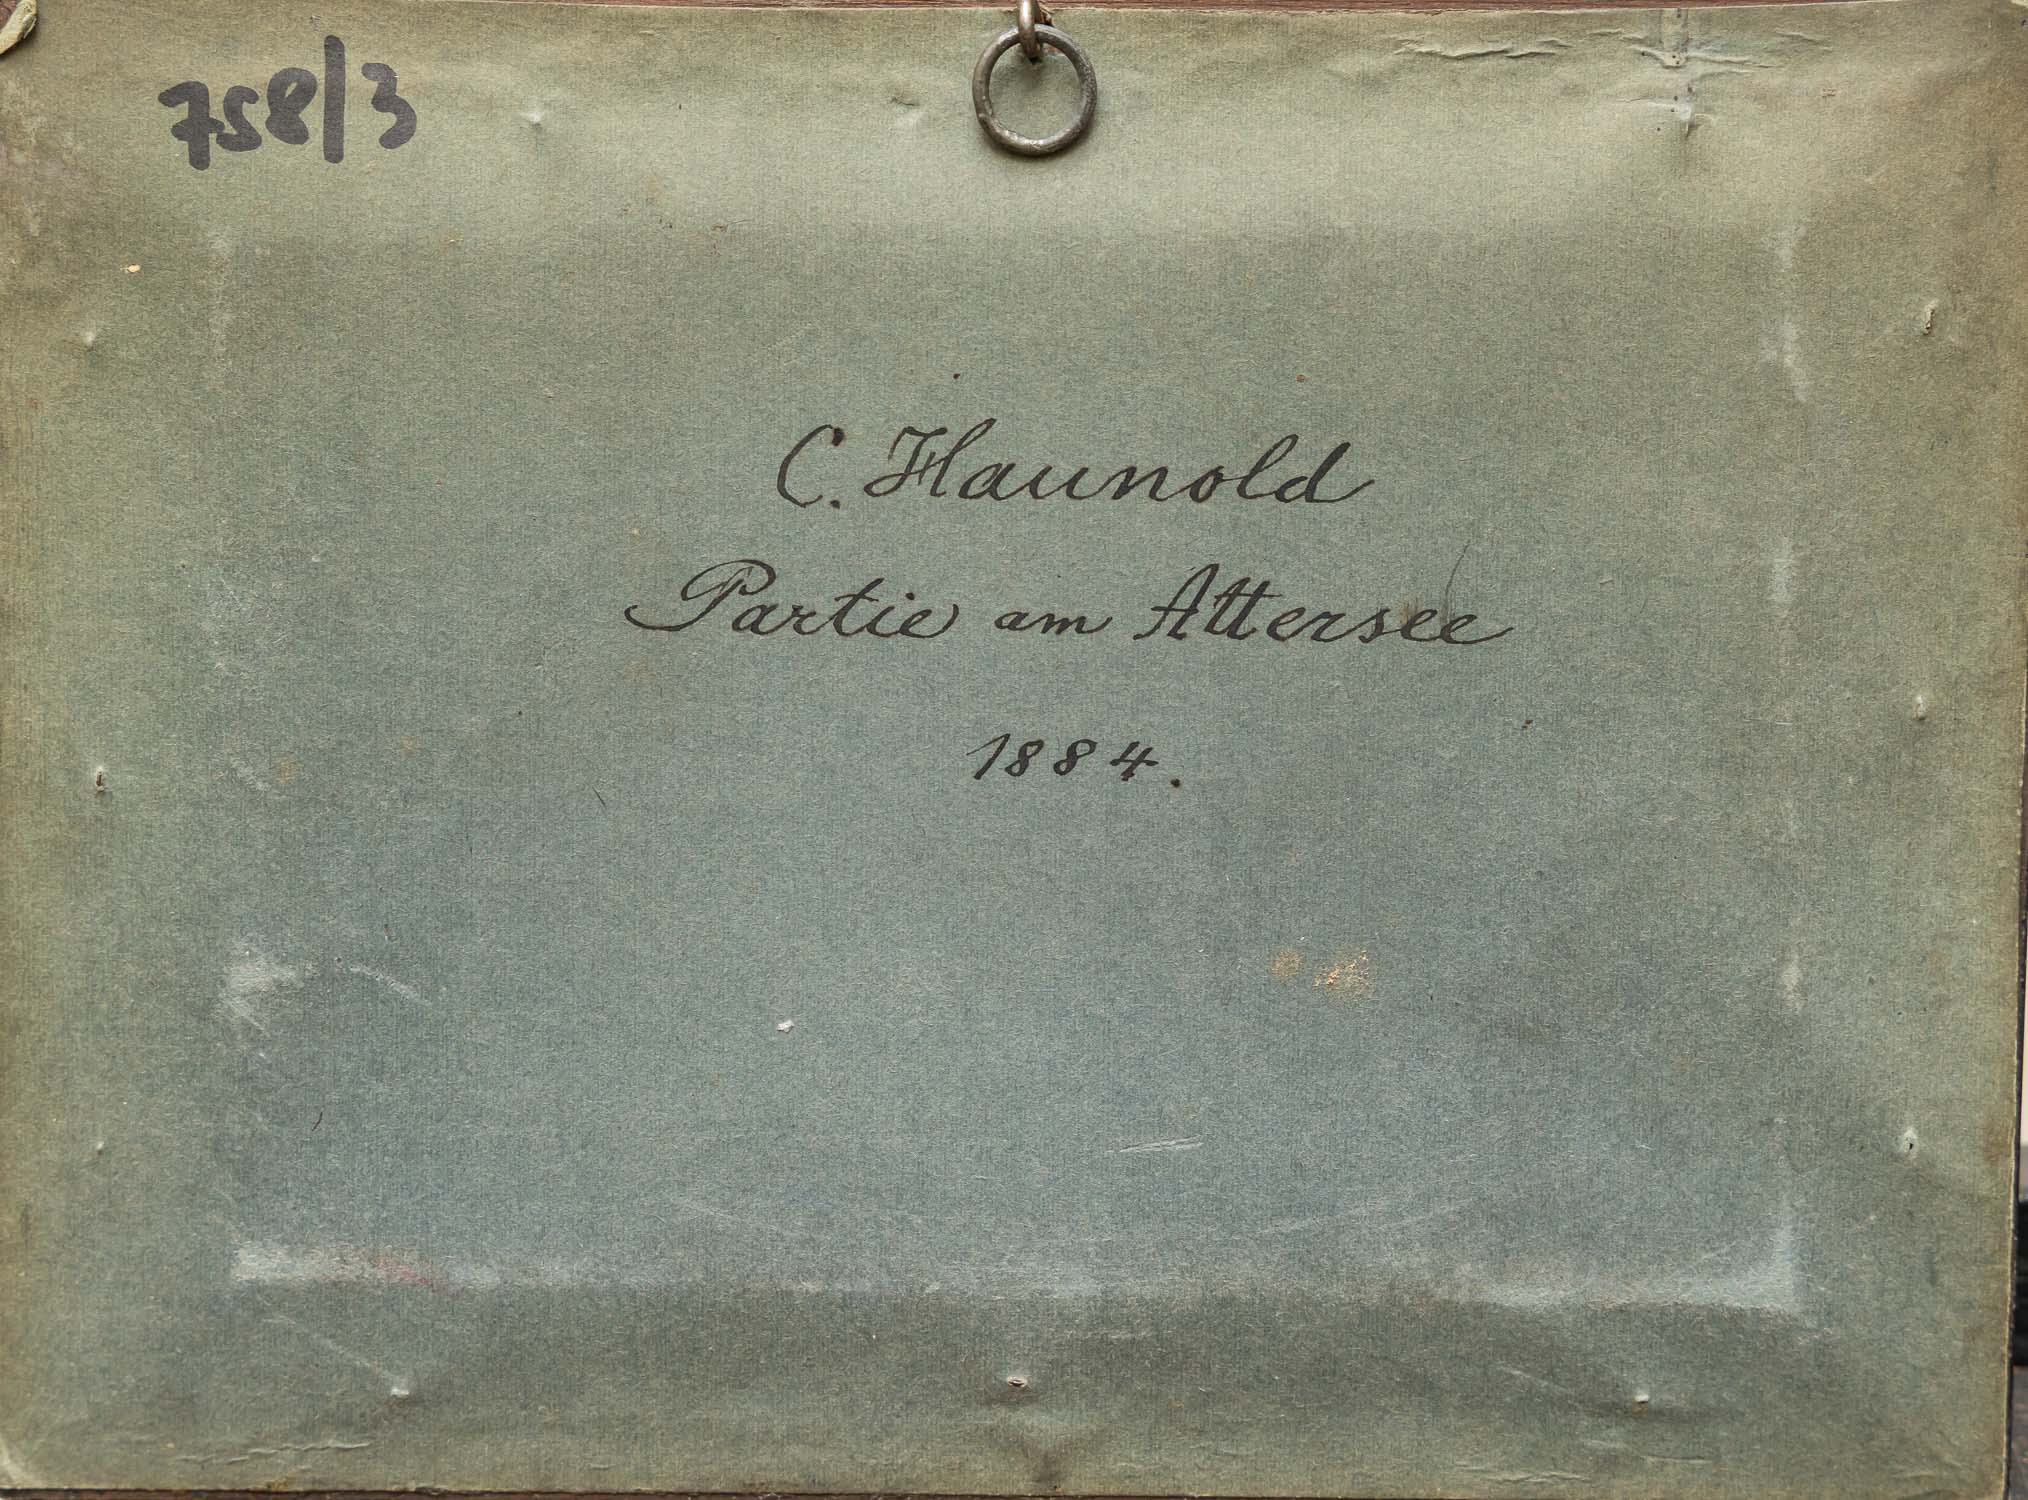 758/3
C. Haunold
Partie am Attersee
1884.